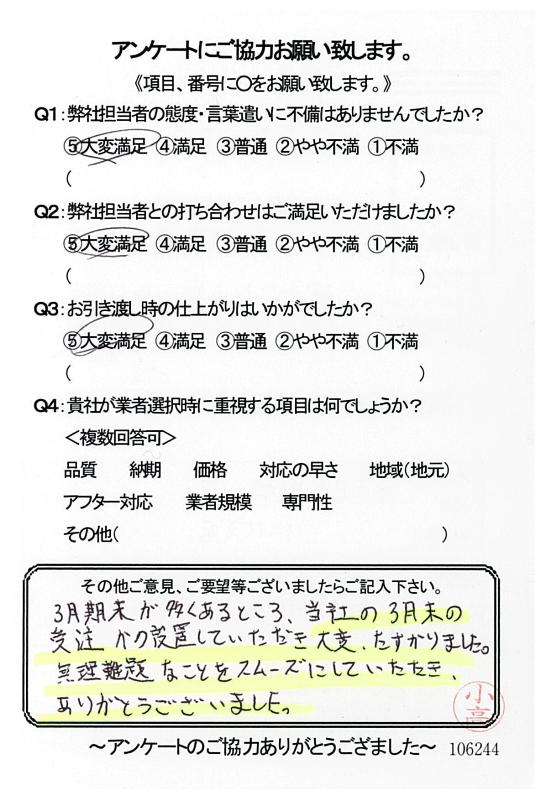 アンケートにご協力お願い致します。
《項目、番号に〇をお願い致します。》
Q1:弊社担当者の態度・言葉遣いに不備はありませんでしたか?
⑤大変満足 ④満足 ③普通 ②やや不満 ①不満
( )
Q2:弊社担当者との打ち合わせはご満足いただけましたか?
⑤大変満足 ④満足 ③普通 ②やや不満 ①不満
( )
Q3:お引き渡し時の仕上がりはいかがでしたか?
⑤大変満足 ④満足 ③普通 ②やや不満 ①不満
( )
Q4:貴社が業者選択時に重視する項目は何でしょうか?
<複数回答可>
品質 納期 価格 対応の早さ 地域(地元)
アフター対応 業者規模 専門性
その他( )
その他ご意見、ご要望等ございましたらご記入下さい。
3月期末が多くあるところ、当社の3月末の
受注 かつ設置していただき大変、たすかりました。
無理難題なことをスムーズにしていただき、
ありがとうございました。
小高
～アンケートのご協力ありがとうござました～ 106244